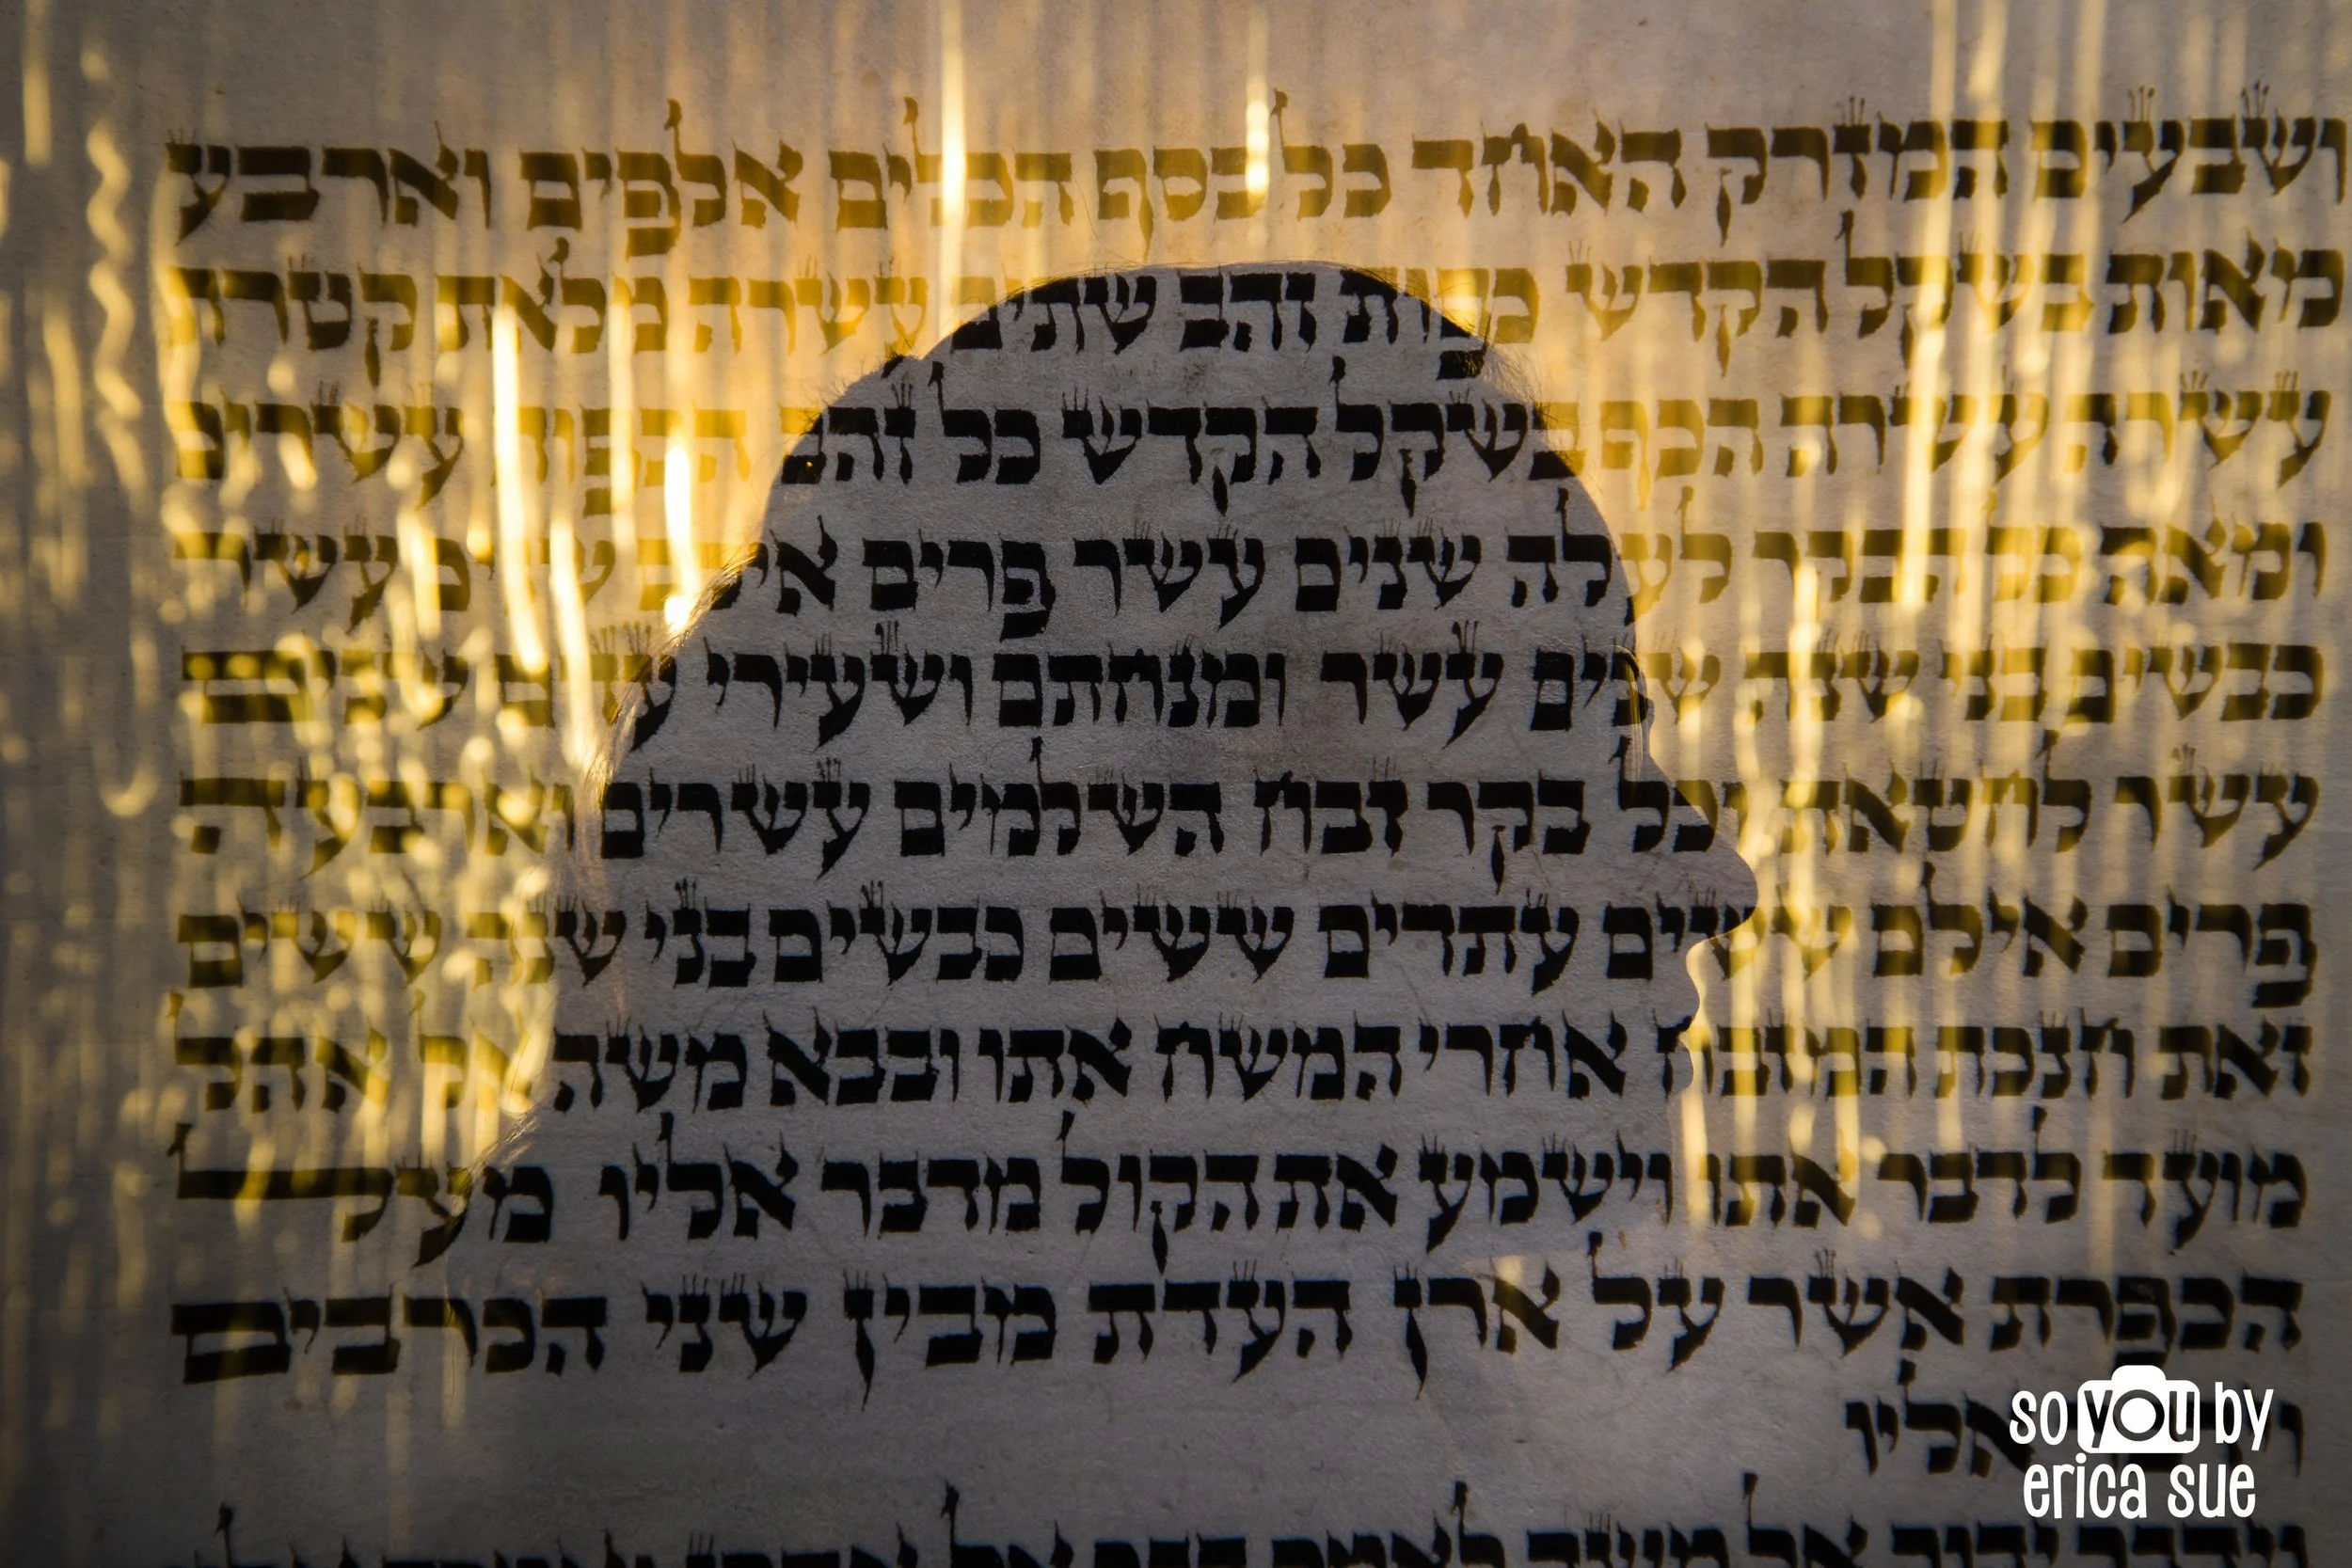 ושבעים המזרק האחד כל כסף הכלים אלפים וארבע
מאות בשקל הקדש כפות זהב שתים עשרה מלאת קטרת
עשרה עשרה הכף בשקל הקדש כל זהב הכפות עשרים
ומאה כל הבקר לעלה שנים עשר פרים אילם שנים עשר
כבשים בני שנה שנים עשר ומנחתם ושעירי עזים שנים
עשר לחטאת וכל בקר זבח השלמים עשרים וארבעה
פרים אילם ששים עתדים ששים כבשים בני שנה ששים
זאת חנכת המזבח אחרי המשח אתו ובבא משה אל אהל
מועד לדבר אתו וישמע את הקול מדבר אליו מעל
הכפרת אשר על ארן העדת מבין שני הכרבים
אליו
וידבר יהוה אל משה לאמר דבר אל אהרן ואמרת אליו
so you by
erica sue